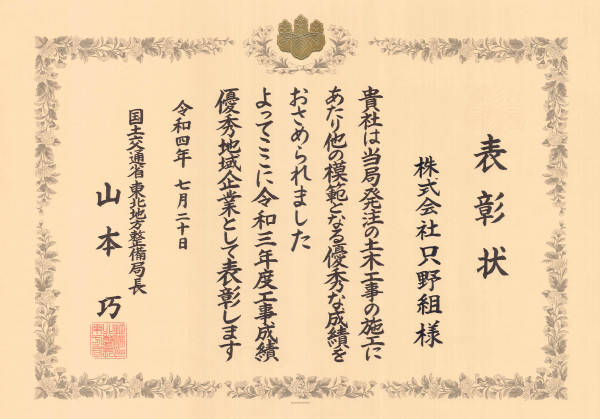 表彰状
株式会社只野組様
貴社は当局発注の土木工事の施工に
あたり他の模範となる優秀な成績を
おさめられました
よってここに令和三年度工事成績
優秀地域企業として表彰します
令和四年 七月二十日
国土交通省東北地方整備局長
山本 巧